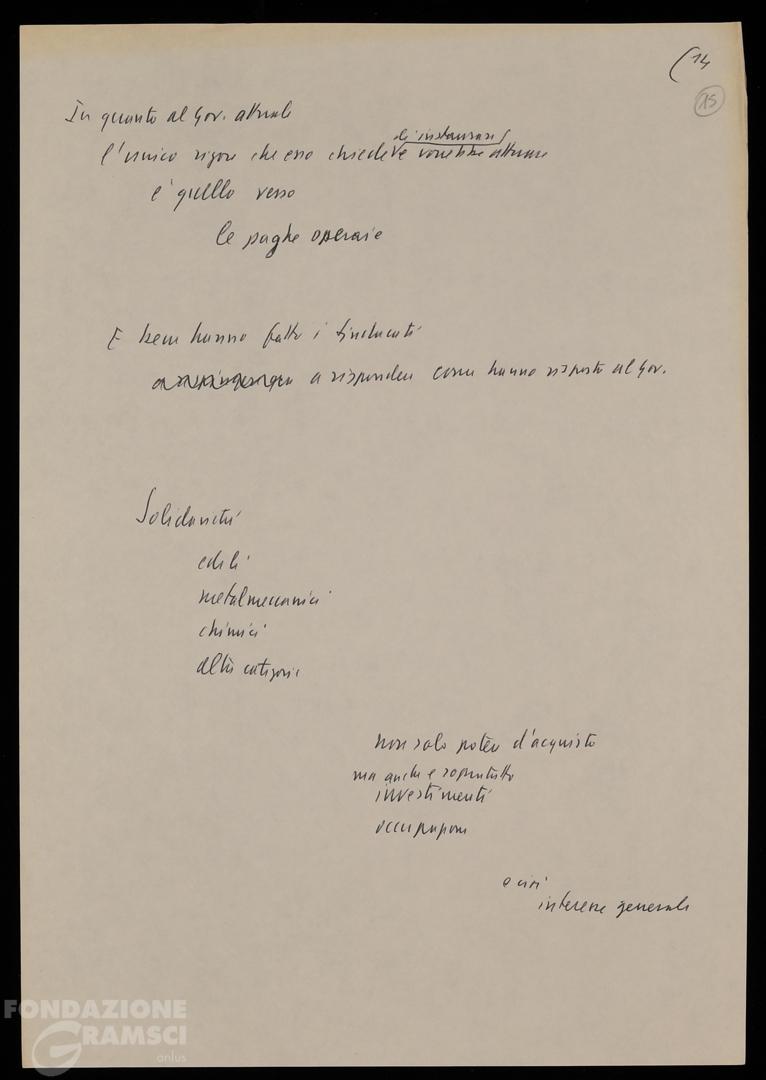 (14
15
In quanto al Gov. attuale
di instaurare
l'unico rigore che esso chiede vorrebbe attuare
è quello verso
le paghe operaie
E bene hanno fatto i sindacati
a rispondere come hanno risposto al Gov.
Solidarietà
edili
metalmeccanici
chimici
altre categorie
non solo potere d'acquisto
ma anche e soprattutto
investimenti
occupazione
e così
interesse generale
FONDAZIONE
GRAMSCI
onlus